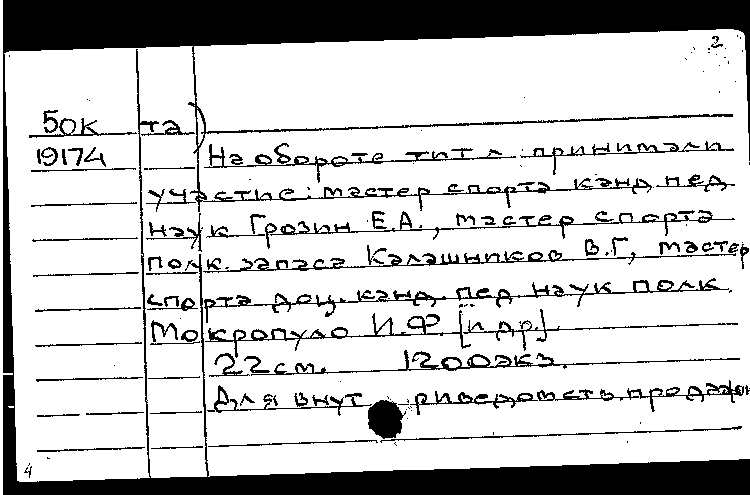 2
50К та)
19174 На обороте тит л: принимали
участие: мастер спорта канд. пед.
наук Грозин Е.А., мастер спорта
полк. запаса Калашников В.Г, мастер
спорта доц. канд. пед. наук полк.
Мокропуло И.Ф. [и др.]
22см. 1200экз.
Для внут риведомств. продажи
4